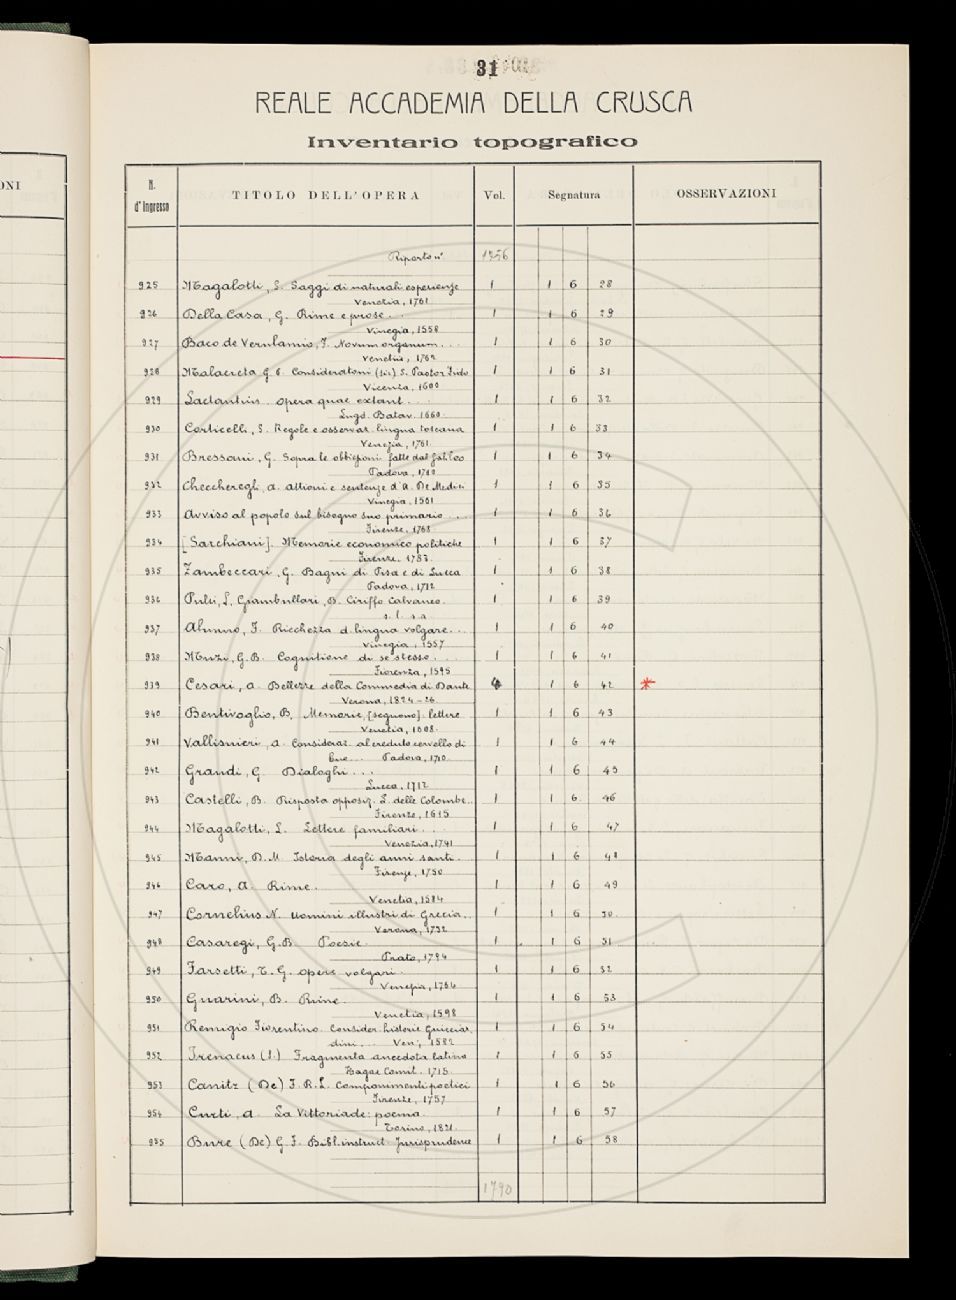 ONI
31
REALE ACCADEMIA DELLA CRUSCA
Inventario topografico
N. d'Ingresso TITOLO DELL'OPERA Vol. Segnatura OSSERVAZIONI
Riporto n° 1756
925 Magalotti, L. Saggi di naturali esperienze 1 1 6 28
Venezia, 1761
926 Della Casa, G. Rime e prose . . 1 1 6 29
Vinegia, 1558
927 Baco de Verulamio, F. Novum organum . . . 1 1 6 30
Venetiis, 1762
928 Malacreta G. B. Consideratoni (sic) s. Pastor Fido 1 1 6 31
Vicenza, 1600
929 Lactantius opera quae extant . . . 1 1 6 32
Lugd. Batav. 1660.
930 Corticelli, S. Regole e osservaz. lingua toscana 1 1 6 33
Venezia, 1761.
931 Bressani, G. Sopra le obbiezioni fatte dal Galileo 1 1 6 34
Padova, 1710
932 Checcheregli, A. Attioni e sentenze d'A. De Medici 1 1 6 35
Vinegia, 1561
933 Avviso al popolo sul bisogno suo primario . . . 1 1 6 36
Firenze, 1768.
934 [Sarchiani]. Memorie economico politiche 1 1 6 37
Firenze, 1783.
935 Zambeccari, G. Bagni di Pisa e di Lucca 1 1 6 38
Padova, 1712
936 Pulci, L. Giambullari, B. Ciriffo Calvaneo. 1 1 6 39
s. l. s. a
937 Alunno, F. Ricchezza d. lingua volgare . . . 1 1 6 40
Vinegia, 1557
938 Muzi, G. B. Cognitione di se stesso . . . 1 1 6 41
Fiorenza, 1595
939 Cesari, A. Bellezze della Commedia di Dante 4 1 6 42 *
Verona, 1824-26.
940 Bentivoglio, B. Memorie, [seguono]. lettere 1 1 6 43
Venetia, 1668.
941 Vallisnieri, A. Consideraz. al creduto cervello di 1 1 6 44
bue . . . Padova, 1710.
942 Grandi, G. Dialoghi . . . 1 1 6 45
Lucca, 1712
943 Castelli, B. Risposta opposiz. L. delle Colombe . . 1 1 6. 46
Firenze, 1615
944 Magalotti, L. Lettere familiari . . . 1 1 6 47
Venezia, 1741
945 Manni, D. M. Istoria degli anni santi. 1 1 6 48
Firenze, 1750
946 Caro, A. Rime. 1 1 6 49
Venetia, 1584
947 Cornelius N. Uomini illustri di Grecia . . 1 1 6 50.
Verona, 1732
948 Casaregi, G. B. Poesie. 1 1 6 51
Prato, 1794
949 Farsetti, T. G. opere volgari. 1 1 6 52
Venezia, 1764
950 Guarini, B. Rime. 1 1 6 53
Venetia, 1598
951 Remigio Fiorentino. Consider. historie Guicciar 1 1 6 54
dini . . . Ven., 1582
952 Irenaeus (S.) Fragmenta anecdota latino 1 1 6 55
Hagae Comit. 1715.
953 Canitz (De) F. R. L. Componimenti poetici 1 1 6 56
Firenze, 1757
954 Curti, A. La Vittoriade: poema. 1 1 6 57
Torino, 1821.
955 Bure (De) G. F. Bibl. instruct. Jurisprudence 1 1 6 58
1790